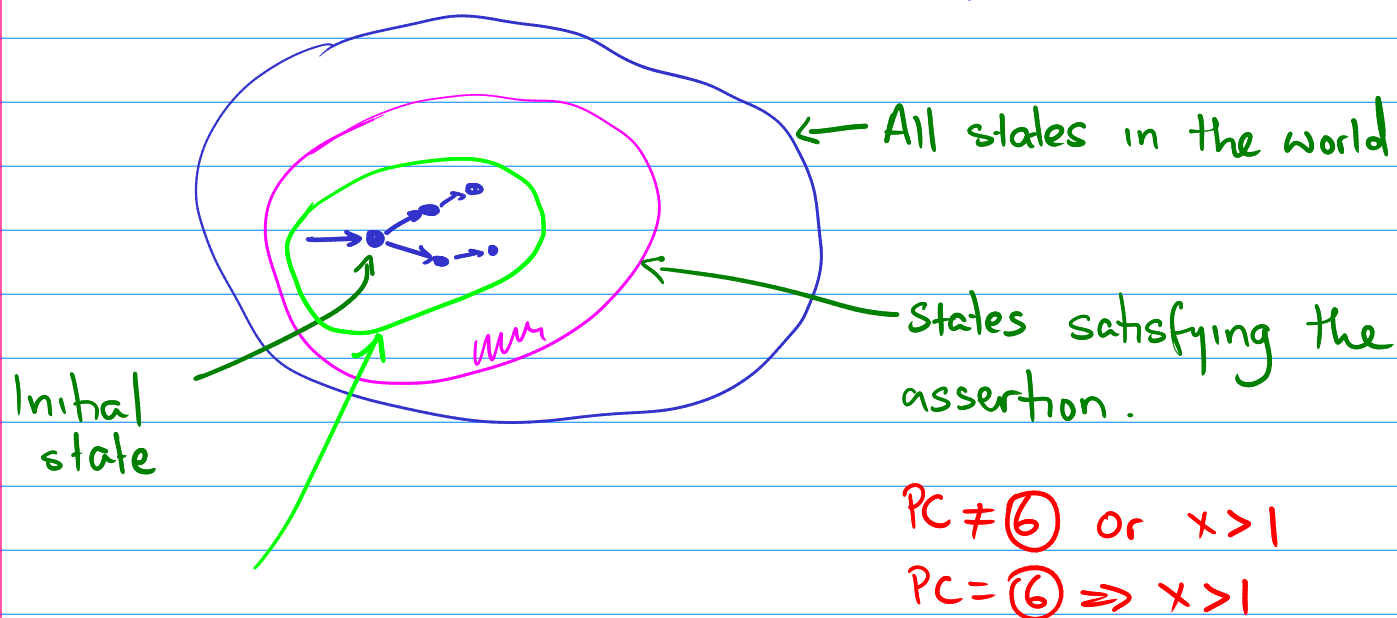 All states in the world
States satisfying the
assertion.
Initial
state
PC ≠ ⑥ or x > 1
PC = ⑥ => x > 1